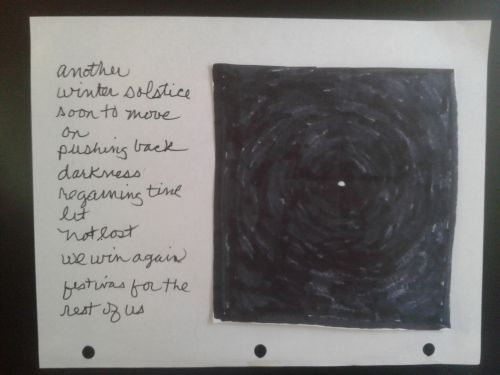 another
winter solstice
soon to move
on
pushing back
darkness
regaining time
lit
not lost
we win again
festivas for the
rest of us